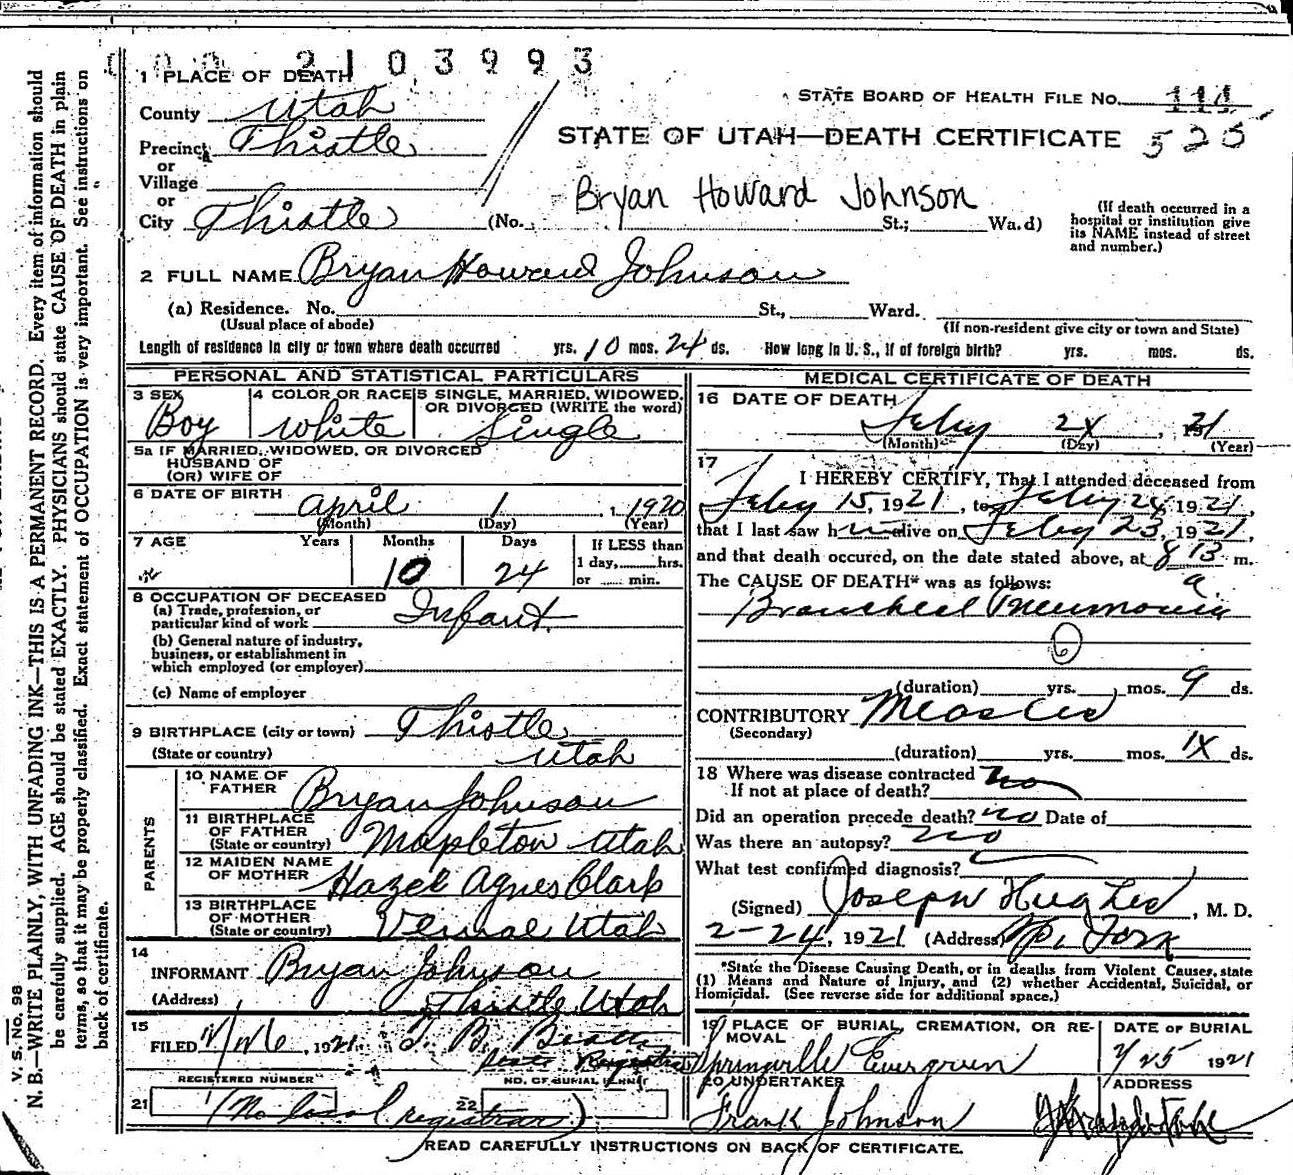 2103993
1 PLACE OF DEATH
County Utah
STATE BOARD OF HEALTH FILE No. 111
Precinct Thistle
STATE OF UTAH—DEATH CERTIFICATE 525
or
Village
or
Bryan Howard Johnson
City Thistle (No. St.; Wa.d)
(If death occurred in a
hospital or institution give
its NAME instead of street
and number.)
2 FULL NAME Bryan Howard Johnson
(a) Residence. No. St., Ward.
(Usual place of abode) (If non-resident give city or town and State)
Length of residence in city or town where death occurred yrs. 10 mos. 24 ds. How long in U. S., if of foreign birth? yrs. mos. ds.
PERSONAL AND STATISTICAL PARTICULARS
3 SEX Boy
4 COLOR OR RACE White
5 SINGLE, MARRIED, WIDOWED,
OR DIVORCED (WRITE the word)
Single
5a IF MARRIED, WIDOWED, OR DIVORCED
HUSBAND OF
(OR) WIFE OF
6 DATE OF BIRTH April 1, 1920
(Month) (Day) (Year)
7 AGE Years Months Days If LESS than
10 24 1 day, hrs.
or min.
8 OCCUPATION OF DECEASED
(a) Trade, profession, or
particular kind of work Infant
(b) General nature of industry,
business, or establishment in
which employed (or employer)
(c) Name of employer
9 BIRTHPLACE (city or town) Thistle
(State or country) Utah
PARENTS
10 NAME OF
FATHER Bryan Johnson
11 BIRTHPLACE
OF FATHER
(State or country) Mapleton Utah
12 MAIDEN NAME
OF MOTHER Hazel Agnes Clark
13 BIRTHPLACE
OF MOTHER
(State or country) Vernal Utah
14
INFORMANT Bryan Johnson
(Address) Thistle Utah
15
FILED , 1921
Registrar
REGISTERED NUMBER NO. OF BURIAL PERMIT
21 (No local registrar) 22
MEDICAL CERTIFICATE OF DEATH
16 DATE OF DEATH
Feby 24, 21
(Month) (Day) (Year)
17
I HEREBY CERTIFY, That I attended deceased from
Feby 15, 1921, to Feby 24, 1921,
that I last saw him alive on Feby 23, 1921,
and that death occured, on the date stated above, at 8 13 m.
a.
The CAUSE OF DEATH* was as follows:
Broncheal Pneumonia
6
(duration) yrs. mos. 9 ds.
CONTRIBUTORY Measles
(Secondary)
(duration) yrs. mos. ds.
18 Where was disease contracted
If not at place of death? no
Did an operation precede death? no Date of
Was there an autopsy? no
What test confirmed diagnosis?
(Signed) Joseph Hughes, M. D.
2-24, 1921 (Address) Sp. Fork
*State the Disease Causing Death, or in deaths from Violent Causes, state
(1) Means and Nature of Injury, and (2) whether Accidental, Suicidal, or
Homicidal. (See reverse side for additional space.)
19 PLACE OF BURIAL, CREMATION, OR RE-
MOVAL
Springville Evergreen
DATE OF BURIAL
2/25 1921
20 UNDERTAKER
Frank Johnson
ADDRESS
READ CAREFULLY INSTRUCTIONS ON BACK OF CERTIFICATE.
V. S. No. 98
N. B.—WRITE PLAINLY, WITH UNFADING INK—THIS IS A PERMANENT RECORD. Every item of information should
be carefully supplied. AGE should be stated EXACTLY. PHYSICIANS should state CAUSE OF DEATH in plain
terms, so that it may be properly classified. Exact statement of OCCUPATION is very important. See instructions on
back of certificate.